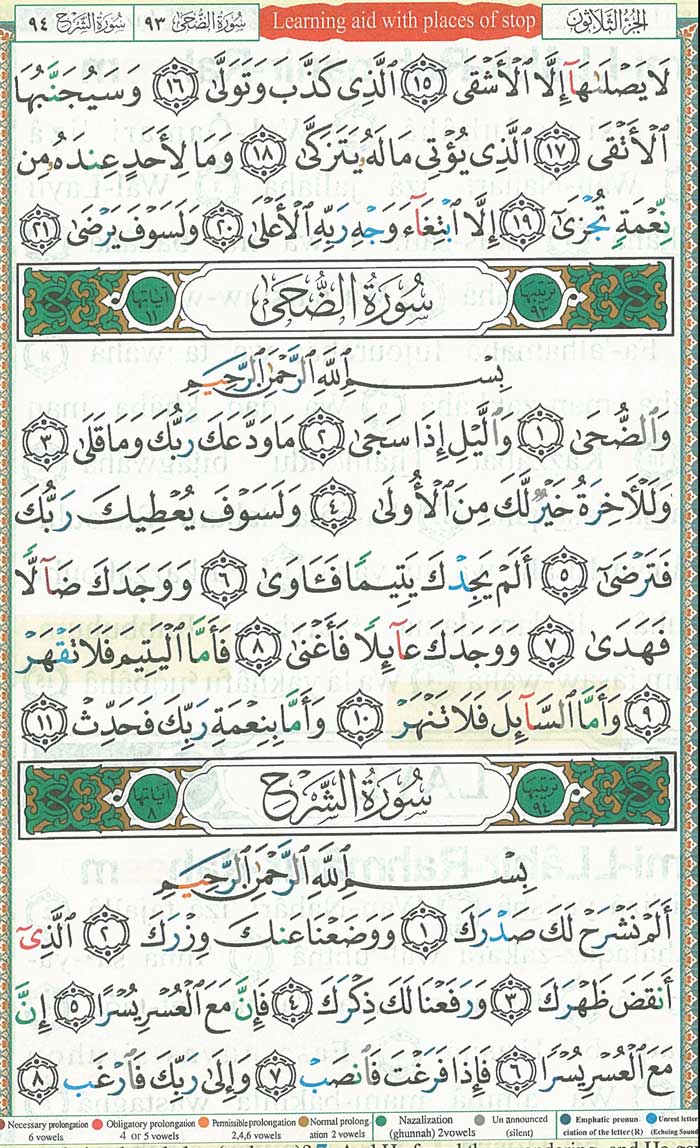 الجُزْءُ الثَّلَاثُونَ Learning aid with places of stop سُورَةُ الضُّحَىٰ ٩٣ سُورَةُ الشَّرْحِ ٩٤
لَا يَصْلَىٰهَآ إِلَّا ٱلْأَشْقَى ١٥ ٱلَّذِى كَذَّبَ وَتَوَلَّىٰ ١٦ وَسَيُجَنَّبُهَا
ٱلْأَتْقَى ١٧ ٱلَّذِى يُؤْتِى مَالَهُۥ يَتَزَكَّىٰ ١٨ وَمَا لِأَحَدٍ عِندَهُۥ مِن
نِّعْمَةٍ تُجْزَىٰٓ ١٩ إِلَّا ٱبْتِغَآءَ وَجْهِ رَبِّهِ ٱلْأَعْلَىٰ ٢٠ وَلَسَوْفَ يَرْضَىٰ ٢١
ترتيبها ٩٣ سُورَةُ الضُّحَىٰ آياتها ١١
بِسْمِ ٱللَّهِ ٱلرَّحْمَٰنِ ٱلرَّحِيمِ
وَٱلضُّحَىٰ ١ وَٱلَّيْلِ إِذَا سَجَىٰ ٢ مَا وَدَّعَكَ رَبُّكَ وَمَا قَلَىٰ ٣
وَلَلْءَاخِرَةُ خَيْرٌ لَّكَ مِنَ ٱلْأُولَىٰ ٤ وَلَسَوْفَ يُعْطِيكَ رَبُّكَ
فَتَرْضَىٰٓ ٥ أَلَمْ يَجِدْكَ يَتِيمًا فَـَٔاوَىٰ ٦ وَوَجَدَكَ ضَآلًّا
فَهَدَىٰ ٧ وَوَجَدَكَ عَآئِلًا فَأَغْنَىٰ ٨ فَأَمَّا ٱلْيَتِيمَ فَلَا تَقْهَرْ
٩ وَأَمَّا ٱلسَّآئِلَ فَلَا تَنْهَرْ ١٠ وَأَمَّا بِنِعْمَةِ رَبِّكَ فَحَدِّثْ ١١
ترتيبها ٩٤ سُورَةُ الشَّرْحِ آياتها ٨
بِسْمِ ٱللَّهِ ٱلرَّحْمَٰنِ ٱلرَّحِيمِ
أَلَمْ نَشْرَحْ لَكَ صَدْرَكَ ١ وَوَضَعْنَا عَنكَ وِزْرَكَ ٢ ٱلَّذِىٓ
أَنقَضَ ظَهْرَكَ ٣ وَرَفَعْنَا لَكَ ذِكْرَكَ ٤ فَإِنَّ مَعَ ٱلْعُسْرِ يُسْرًا ٥ إِنَّ
مَعَ ٱلْعُسْرِ يُسْرًا ٦ فَإِذَا فَرَغْتَ فَٱنصَبْ ٧ وَإِلَىٰ رَبِّكَ فَٱرْغَب ٨
Necessary prolongation Obligatory prolongation Permissible prolongation Normal prolong- Nazalization Un announced Emphatic pronun- Unrest letter
6 vowels 4 or 5 vowels 2,4,6 vowels ation 2 vowels (ghunnah) 2vowels (silent) ciation of the letter (R) (Echoing Sound